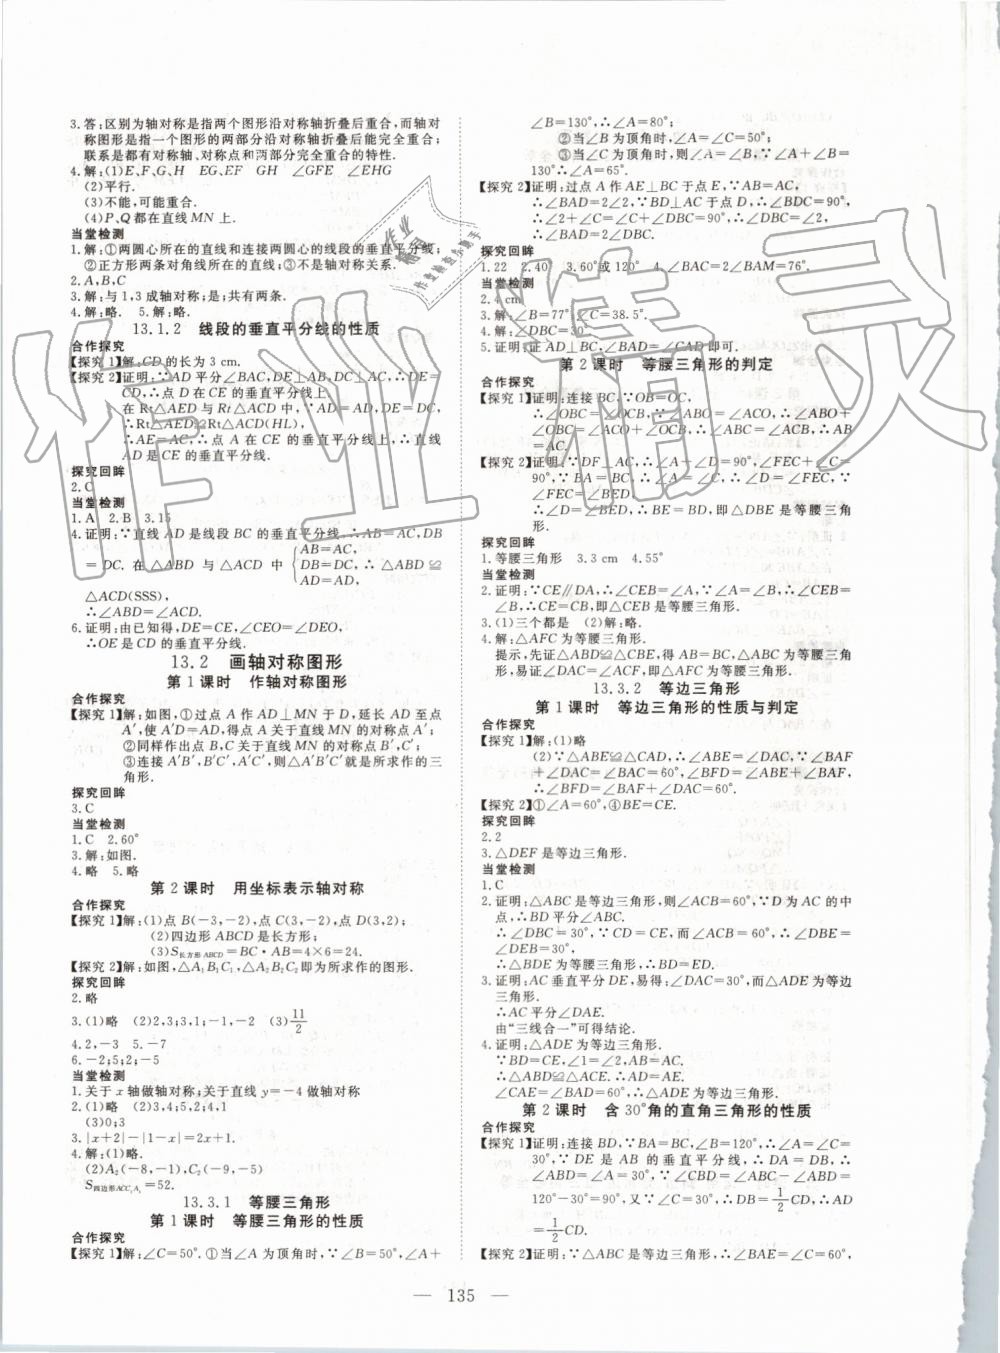 3.答:区别为轴对称是指两个图形沿对称轴折叠后重合,而轴对
称图形是指一个图形的两部分沿对称轴折叠后能完全重合;
联系是都有对称轴、对称点和两部分完全重合的特性.
4.解:(1)E、F、G、H EG、EF GH ∠GFE ∠EHG
(2)平行.
(3)不能,可能重合.
(4)P、Q都在直线MN上.
当堂检测
1.解:①两圆心所在的直线和连接两圆心的线段的垂直平分线;
②正方形两条对角线所在的直线;③不是轴对称关系.
2.A,B,C
3.解:与1,3成轴对称;是;共有两条.
4.解:略. 5.解:略.
13.1.2 线段的垂直平分线的性质
合作探究
【探究1】解:CD的长为3 cm.
【探究2】证明:∵AD平分∠BAC,DE⊥AB,DC⊥AC,∴DE=
CD,∴点D在CE的垂直平分线上.
在Rt△AED与Rt△ACD中,∵AD=AD,DE=DC,
∴Rt△AED≌Rt△ACD(HL),
∴AE=AC,∴点A在CE的垂直平分线上,∴直线
AD是CE的垂直平分线.
探究回眸
2.C
当堂检测
1.A 2.B 3.15
4.证明:∵直线AD是线段BC的垂直平分线,∴AB=AC,DB
=DC. 在△ABD与△ACD中 {AB=AC, DB=DC, AD=AD, ∴△ABD≌
△ACD(SSS),
∴∠ABD=∠ACD.
6.证明:由已知得,DE=CE,∠CEO=∠DEO,
∴OE是CD的垂直平分线.
13.2 画轴对称图形
第1课时 作轴对称图形
合作探究
【探究1】解:如图,①过点A作AD⊥MN于D,延长AD至点
A′,使A′D=AD,得点A关于直线MN的对称点A′;
②同样作出点B,C关于直线MN的对称点B′、C′;
③连接A′B′,B′C′,A′C′,则△A′B′C′就是所求作的三
角形.
探究回眸
3.C
当堂检测
1.C 2.60°
3.解:如图.
4.略 5.略
第2课时 用坐标表示轴对称
合作探究
【探究1】解:(1)点B(-3,-2),点C(3,-2),点D(3,2);
(2)四边形ABCD是长方形;
(3)S长方形ABCD=BC·AB=4×6=24.
【探究2】解:如图,△A₁B₁C₁,△A₂B₂C₂即为所求作的图形.
探究回眸
2.略
3.(1)略 (2)2,3;3,1;-1,-2 (3)11/2
4.2,-3 5.-7
6.-2;5;2;-5
当堂检测
1.关于x轴做轴对称;关于直线y=-4做轴对称
2.(1)略 (2)3,4;5,2;1,4
(3)0;3
3.|x+2|-|1-x|=2x+1.
4.解:(1)略.
(2)A₂(-8,-1),C₂(-9,-5).
S四边形ACC₁A₁=52.
13.3.1 等腰三角形
第1课时 等腰三角形的性质
合作探究
【探究1】解:∠C=50°. ①当∠A为顶角时,∵∠B=50°,∠A+
∠B=130°,∴∠A=80°;
②当∠B为顶角时,∠A=∠C=50°;
③当∠C为顶角时,则∠A=∠B,∵∠A+∠B=
130°,∴∠A=65°.
【探究2】证明:过点A作AE⊥BC于点E,∵AB=AC,
∴∠BAD=2∠2,∵BD⊥AC于点D,∴∠BDC=90°,
∴∠2+∠C=∠C+∠DBC=90°,∴∠DBC=∠2,
∴∠BAD=2∠DBC.
探究回眸
1.22 2.40° 3.60°或120° 4.∠BAC=2∠BAM=76°.
当堂检测
2.4 cm
3.解:∠B=77°,∠C=38.5°.
4.解:∠DBC=30°.
5.证明:证AD⊥BC,∠BAD=∠CAD即可.
第2课时 等腰三角形的判定
合作探究
【探究1】证明:连接BC,∵OB=OC,
∴∠OBC=∠OCB,∵∠ABO=∠ACO,∴∠ABO+
∠OBC=∠ACO+∠OCB,∴∠ABC=∠ACB,∴AB
=AC.
【探究2】证明:∵DF⊥AC,∴∠A+∠D=90°,∠FEC+∠C=
90°,∵BA=BC,∴∠A=∠C,∴∠D=∠FEC,∵
∠FEC=∠BED,∴BE=BD,即△DBE是等腰三角
形.
探究回眸
1.等腰三角形 3.3 cm 4.55°
当堂检测
2.证明:∵CE∥DA,∴∠CEB=∠A,∵∠A=∠B,∴∠CEB=
∠B,∴CE=CB,即△CEB是等腰三角形.
3.(1)三个都是 (2)解:略.
4.解:△AFC为等腰三角形.
提示,先证△ABD≌△CBE,得AB=BC,△ABC为等腰三角
形,易证∠DAC=∠FCA,即△AFC为等腰三角形.
13.3.2 等边三角形
第1课时 等边三角形的性质与判定
合作探究
【探究1】解:(1)略
(2)∵△ABE≌△CAD,∴∠ABE=∠DAC,∵∠BAF
+∠DAC=∠BAC=60°,∠BFD=∠ABE+∠BAF,
∴∠BFD=∠BAF+∠DAC=60°.
【探究2】①∠A=60°,④BE=CE.
探究回眸
2.2
3.△DEF是等边三角形.
当堂检测
1.C
2.证明:△ABC为等边三角形,则∠ACB=60°,∵D为AC的中
点,∴BD平分∠ABC.
∴∠DBC=30°,∵CD=CE,∴∠CDE=30°,∴∠DBE=
∠DEB=30°,
∴△BDE为等腰三角形,∴BD=ED.
3.证明:AC垂直平分DE,易得:∠DAC=30°,而△ADE为等
腰三角形.
∴AC平分∠DAE.
由“三线合一”可得结论.
4.证明:△ADE为等边三角形.
∵BD=CE,∠1=∠2,AB=AC.
∴△ABD≌△ACE. ∴AD=AE.
∠CAE=∠BAD=60°,∴△ADE为等边三角形.
第2课时 含30°角的直角三角形的性质
合作探究
【探究1】证明:连接BD,∵BA=BC,∠B=120°,∴∠A=∠C=
30°,∵DE是AB的垂直平分线,∴DA=DB,∴
∠ABD=∠A=30°,∴∠DBC=∠ABC-∠ABD=
120°-30°=90°,又∵∠C=30°,∴DB=1/2CD,∴AD
=1/2CD.
【探究2】证明:∵△ABC是等边三角形,∴∠BAE=∠C=60°,
— 135 —
作业精灵